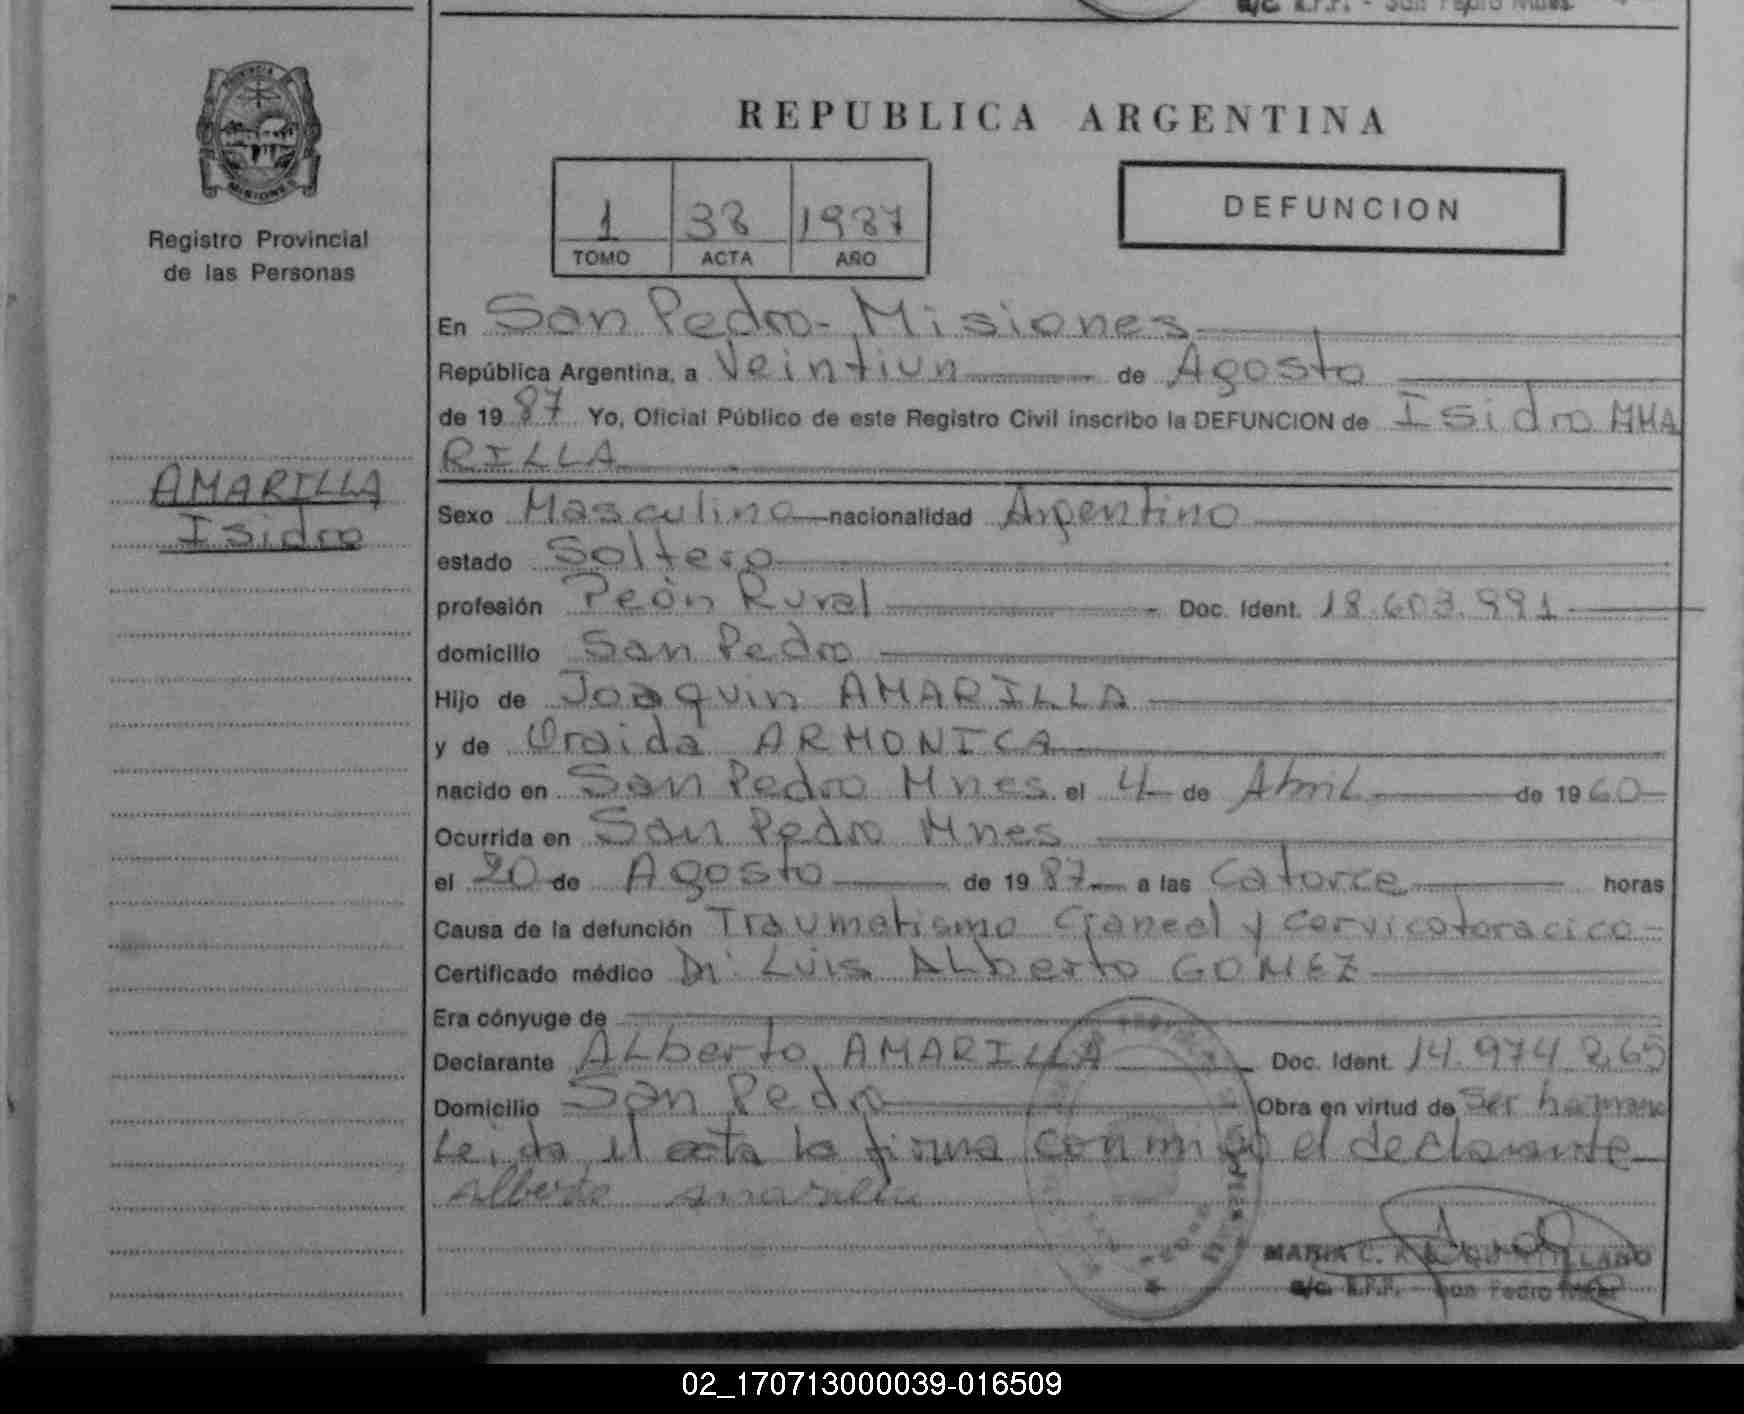 a/c. R.P.P. - San Pedro Mnes.
REPUBLICA ARGENTINA
PROVINCIA DE
MISIONES
Registro Provincial
de las Personas
1 38 1987
TOMO ACTA AÑO
DEFUNCION
En San Pedro - Misiones
República Argentina, a Veintiun de Agosto
de 19 87 Yo, Oficial Público de este Registro Civil inscribo la DEFUNCION de Isidro AMA
RILLA
AMARILLA
Isidro
Sexo Masculino nacionalidad Argentino
estado Soltero
profesión Peón Rural Doc. Ident. 18.603.991
domicilio San Pedro
Hijo de Joaquin AMARILLA
y de Oraida ARMONICA
nacido en San Pedro Mnes. el 4 de Abril de 19 60
Ocurrida en San Pedro Mnes
el 20 de Agosto de 19 87 a las Catorce horas
Causa de la defunción Traumatismo Craneal y cervicotoracico
Certificado médico Dr. Luis Alberto GOMEZ
Era cónyuge de
Declarante Alberto AMARILLA Doc. Ident. 14.974.265
Domicilio San Pedro Obra en virtud de Ser hermano
Leida el acta la firma conmigo el declarante
Alberto amarilla
MARIA C.
a/c. R.P.P. - San Pedro Mnes
02_170713000039-016509